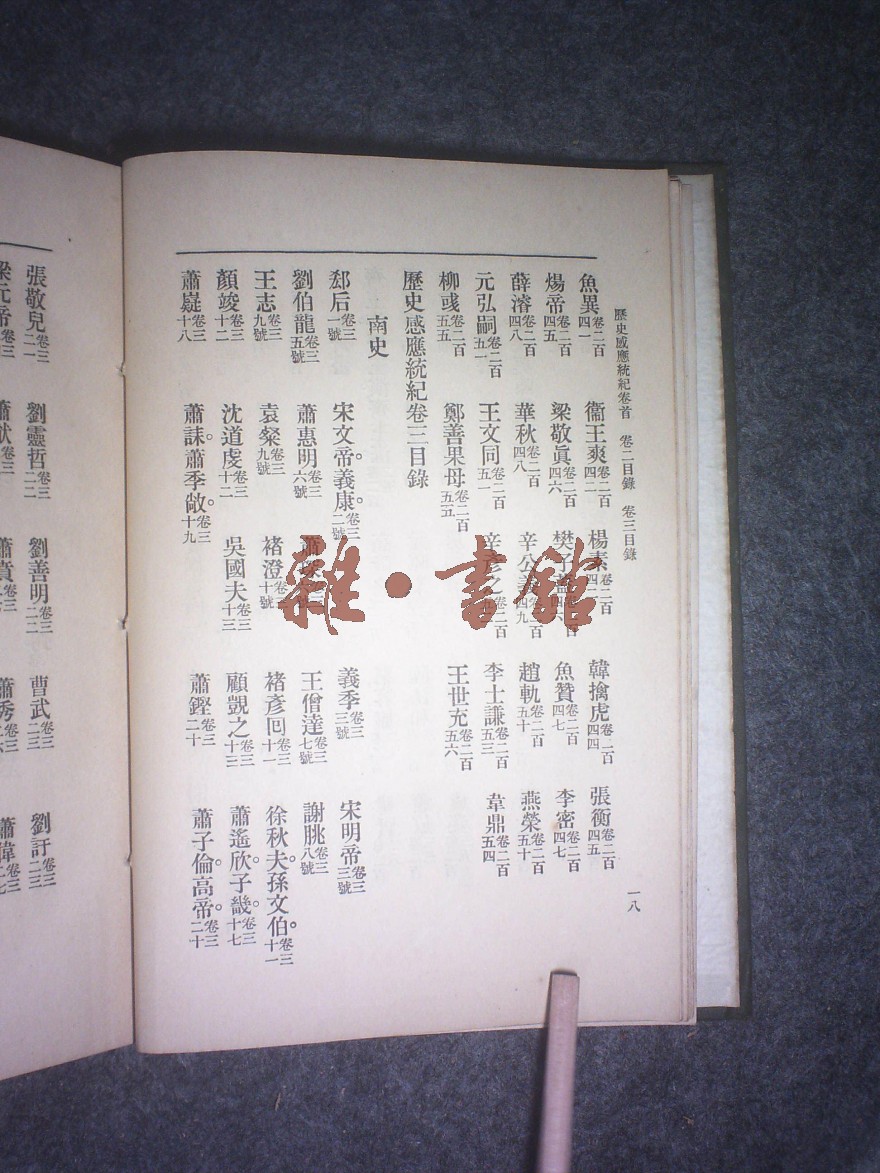 歷史感應統紀卷首 卷二目錄 卷三目錄 一八
魚異卷二百四一 衞王爽卷二百四二 楊素卷二百四二 韓擒虎卷二百四四 張衡卷二百四五
煬帝卷二百四五 梁敬眞卷二百四六 樊子蓋卷二百四六 魚贊卷二百四七 李密卷二百四七
薛濬卷二百四八 華秋卷二百四八 辛公義卷二百四九 趙軌卷二百五十 燕榮卷二百五十
元弘嗣卷二百五一 王文同卷二百五一 辛彥之卷二百 李士謙卷二百五三 韋鼎卷二百五四
柳彧卷二百五五 鄭善果母卷二百五五 王世充卷二百五六
歷史感應統紀卷三目錄
南史
郄后卷三一號 宋文帝義康。卷三二號 義季卷三三號 宋明帝卷三三號
劉伯龍卷三五號 蕭惠明卷三六號 蕭琛卷三 王僧達卷三七號 謝朓卷三八號
王志卷三九號 袁粲卷三九號 褚澄卷三十號 褚彥回卷三十一 徐秋夫。孫文伯。卷三十一
顏竣卷三十二 沈道虔卷三十二 吳國夫卷三十三 顧覬之卷三十三 蕭遙欣。子畿。卷三十七
蕭嶷卷三十八 蕭誄。蕭季敞。卷三十九 蕭鏗卷三二十 蕭子倫。高帝。卷三二十
張敬兒卷三二一 劉靈哲卷三二二 劉善明卷三二二 曹武卷三二三 劉訏卷三二三
梁元帝卷三 蕭賁卷三 蕭秀卷三二六 蕭偉卷三二七
雜·書館